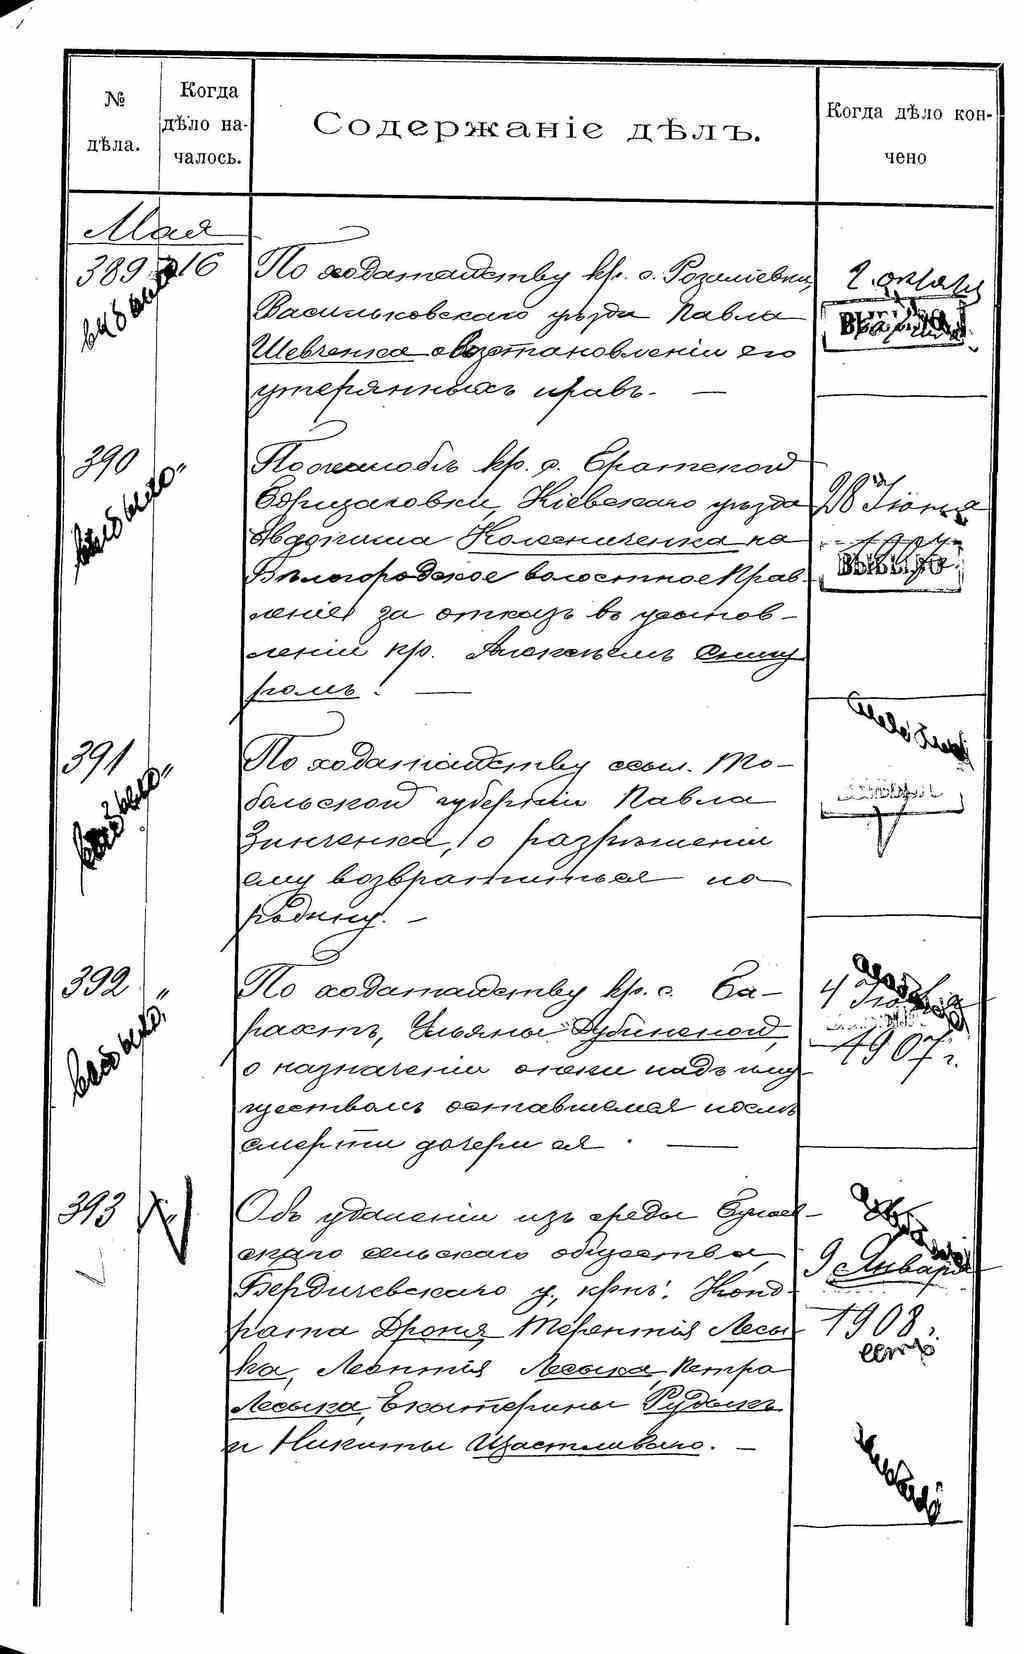 № дѣла.
Когда дѣло на-
чалось.
Содержаніе дѣлъ.
Когда дѣло кон-
чено
Мая
389 16 По ходатайству кр. с. Розаліевки,
выбыло
Васильковскаго уѣзда Павла
Шевченка о возстановленіи его
утерянныхъ правъ. —
2 апрѣля
ВЫБЫЛО
390 " По жалобѣ кр. с.
выбыло
Кіевскаго уѣзда
Колесниченка на
Бѣлогородское волостное Прав-
леніе за отказъ въ усынов-
леніи кр. Алексѣемъ Снигу
ромъ. —
28 Іюня
1907
ВЫБЫЛО
391 " По ходатайству ссыл. То-
выбыло
больской губерніи Павла
Зинченка, о разрѣшеніи
ему возвратиться на
родину. —
392 " По ходатайству кр. с. Ба-
выбыло
рахтъ, Ульяны Дубинской,
о назначеніи опеки надъ иму-
ществомъ оставшемся послѣ
смерти дочери ея. —
4 Іюня
1907 г.
393 " Объ удаленіи изъ среды
скаго сельскаго общества,
Бердичевскаго у., крнъ: Конд-
рата Дроня, Терентія Лесы-
ка, Леонтія Лесыка, Петра
Лесыка, Екатерины Рудыкъ
и Никиты Щастливаго. —
9 Января
1908 г.
есть